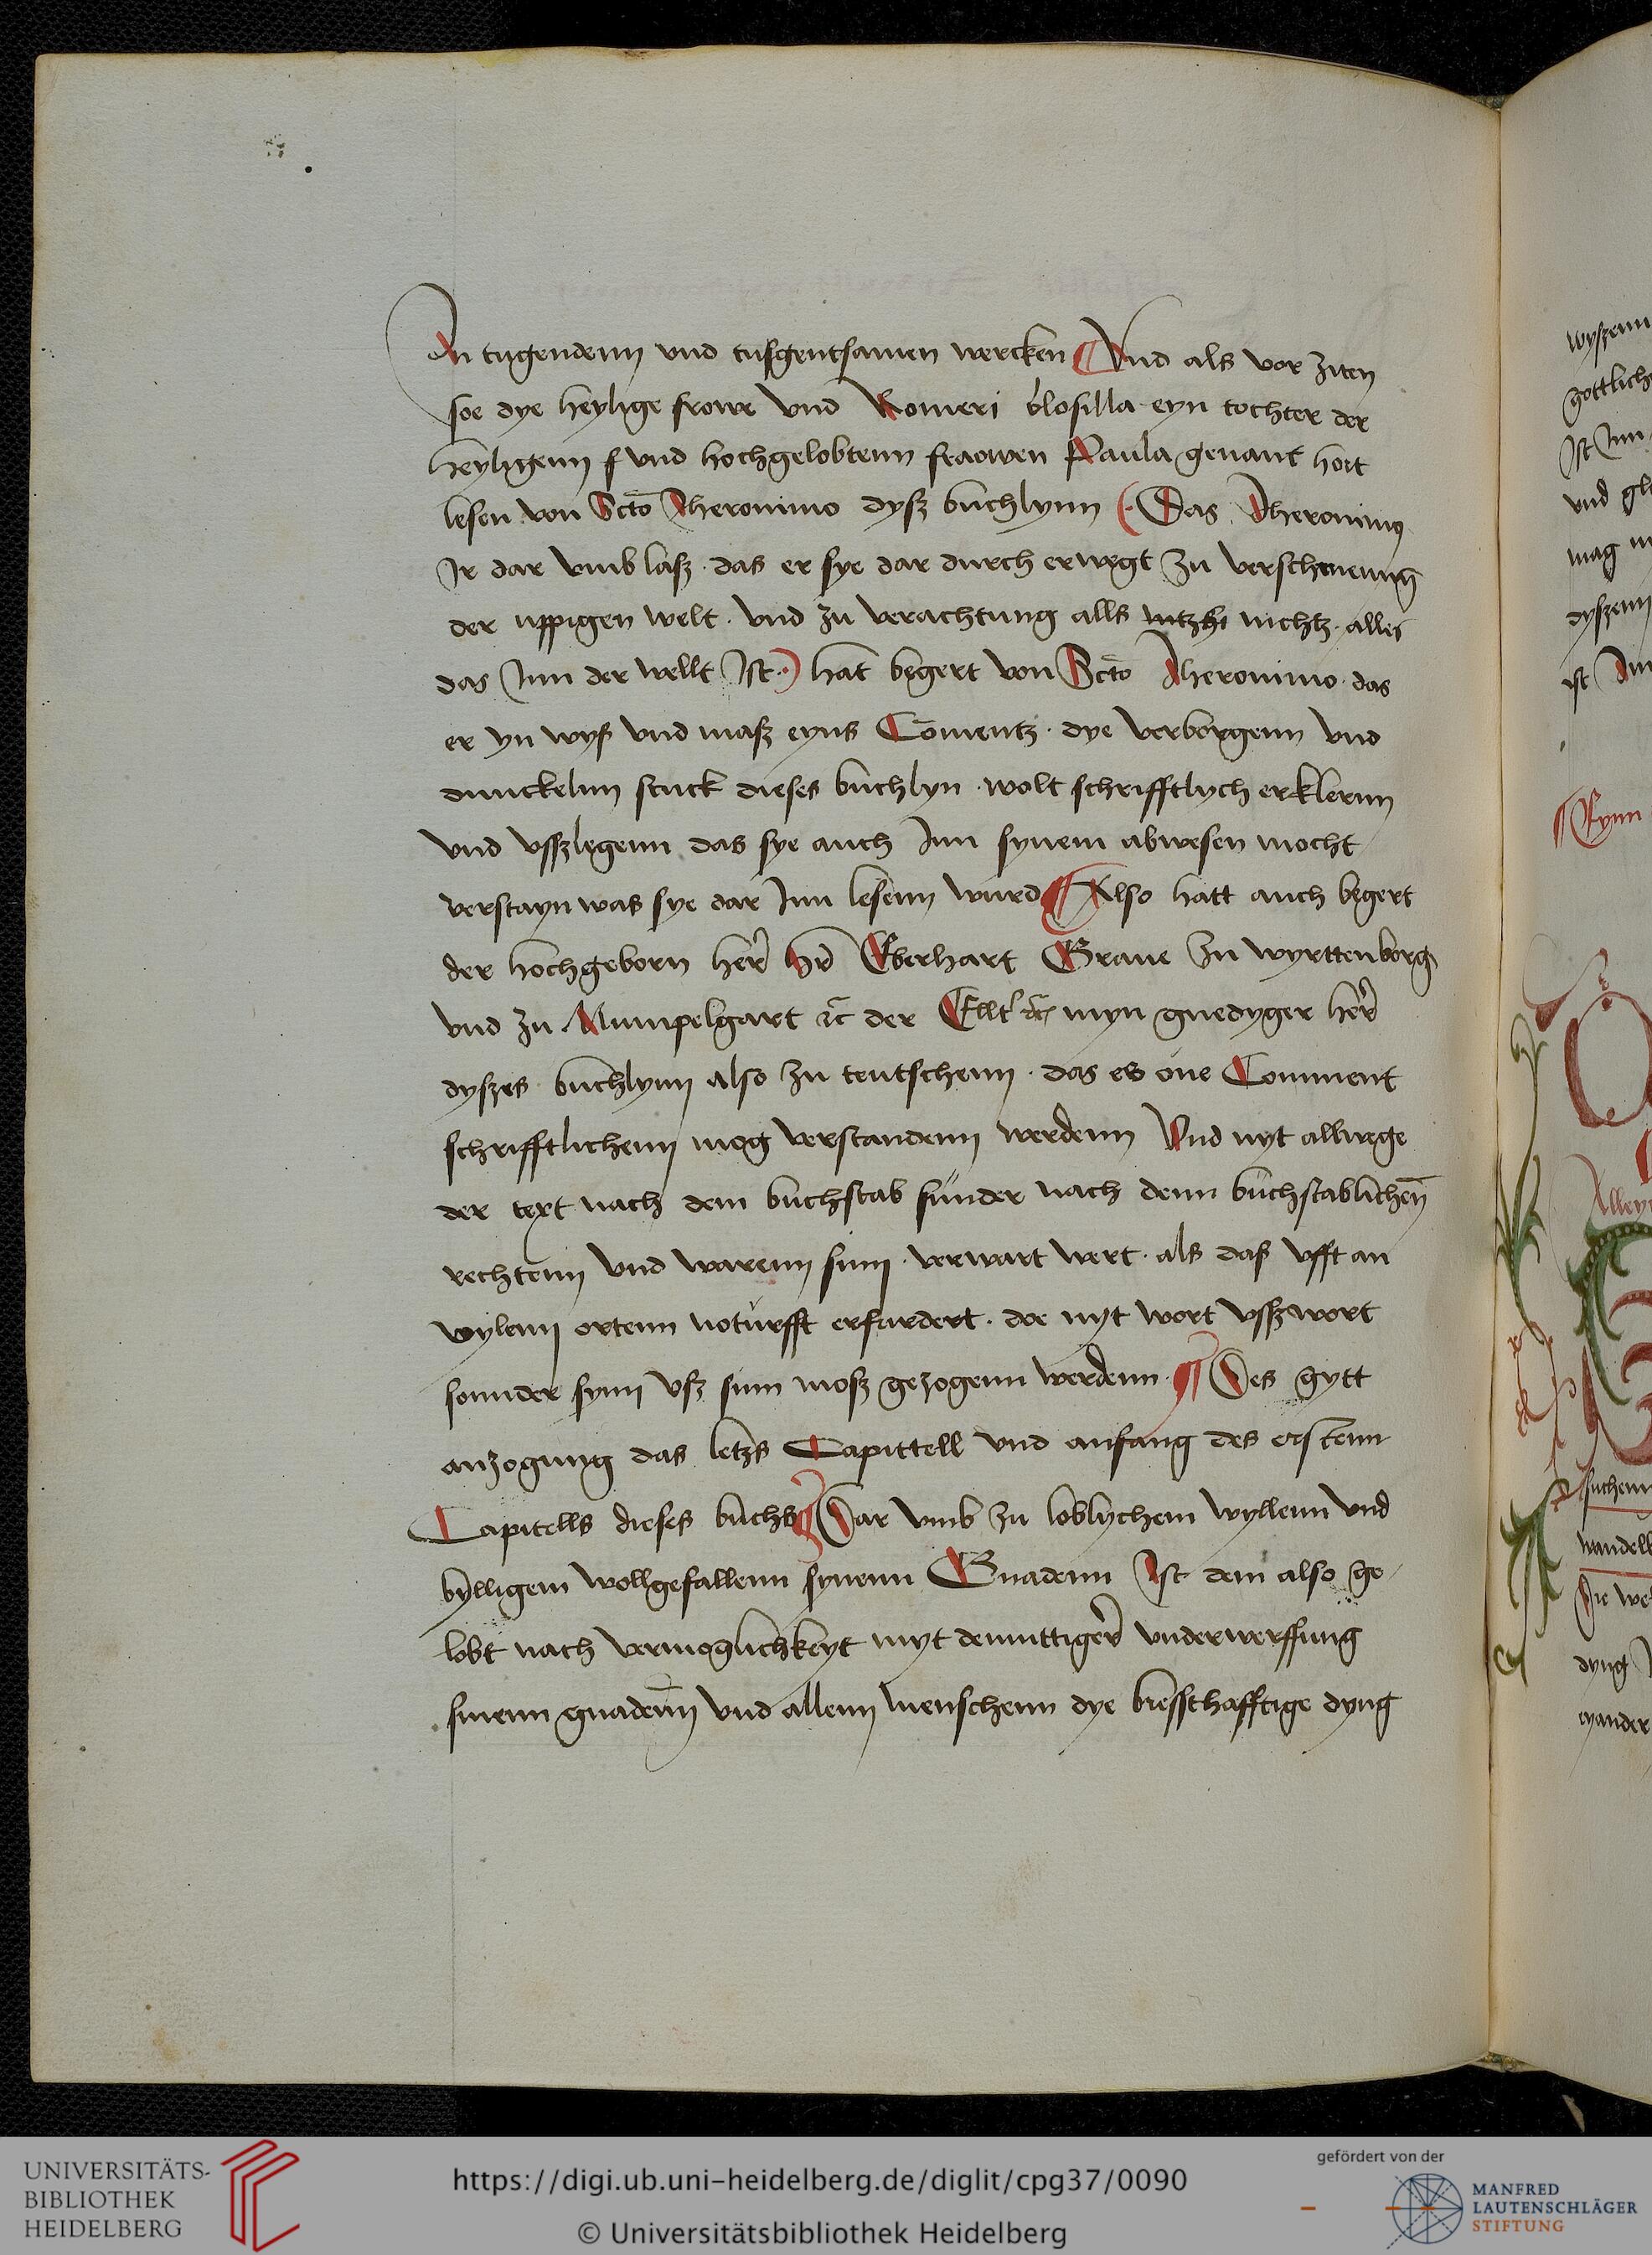 An tugendenn vnd tusgentsamen wercken ¶ Vnd als vor ziten
soe dye heylige frowe vnd Romeri blosilla eyn tochter der
heyligenn f vnd hochgelobtenn fraowen Paula genant hort
lesen von Scto Jheronimo dysz buchlynn (· Das Jheronimus
Jr dar vmb lasz · das er sye dar durch erwegt zu verschmeung
der uppigen welt · vnd zu verachtung alls nichtz · alles
das Jnn der wellt Jst ·) hat begert von Scto Jheronimo · das
er yn wys vnd masz eyns Comentz · dye verborgenn vnd
dunckelnn stuck dieses buchlyn · wolt schrifftlych erklernn
vnd vsszlegenn das sye auch Jnn synem abwesen mocht
verstayn was sye dar Jnn lesenn wurd ¶ Also hatt auch begert
der hochgeborn her hr Eberhart Graue zu wyrttenberg
vnd zu Mumpelgart etc der Ellt etc myn gnedyger her
dyszes buchlynn also zu teutschenn · das es one Comment
schrifftlichenn mog verstandenn werdenn Vnd nyt allwege
der text nach dem buchstab sunder nach denn buchstablichen
rechtenn vnd warenn sinn · verwart wert · als das vfft an
vylenn ortenn noturfft erfardert · doe nyt wort vsszwort
sonnder synn vsz sinn mosz gezogenn werdenn · ¶ Des gytt
anzogung das letzs Capittell vnd anfang des erstenn
Capitells dieses buchs ¶ Dar vmb zu loblychem wyllenn vnd
bylligem wollgefallenn synenn Gnadenn Jst dem also ge-
lobt nach vermoglichkeyt myt demuttiger vnderwerffung
sinenn gnadenn vnd allenn menschenn dye bressthafftige dyng
wyszenn
gottliche
Jst Jnn
vnd gl
mag
dyszenn
ist Jnn
¶ Eynn
Alley
suchenn
wandell
Die we
dyng
eyander
UNIVERSITÄTS-
BIBLIOTHEK
HEIDELBERG
https://digi.ub.uni-heidelberg.de/diglit/cpg37/0090
© Universitätsbibliothek Heidelberg
gefördert von der
MANFRED
LAUTENSCHLÄGER
STIFTUNG